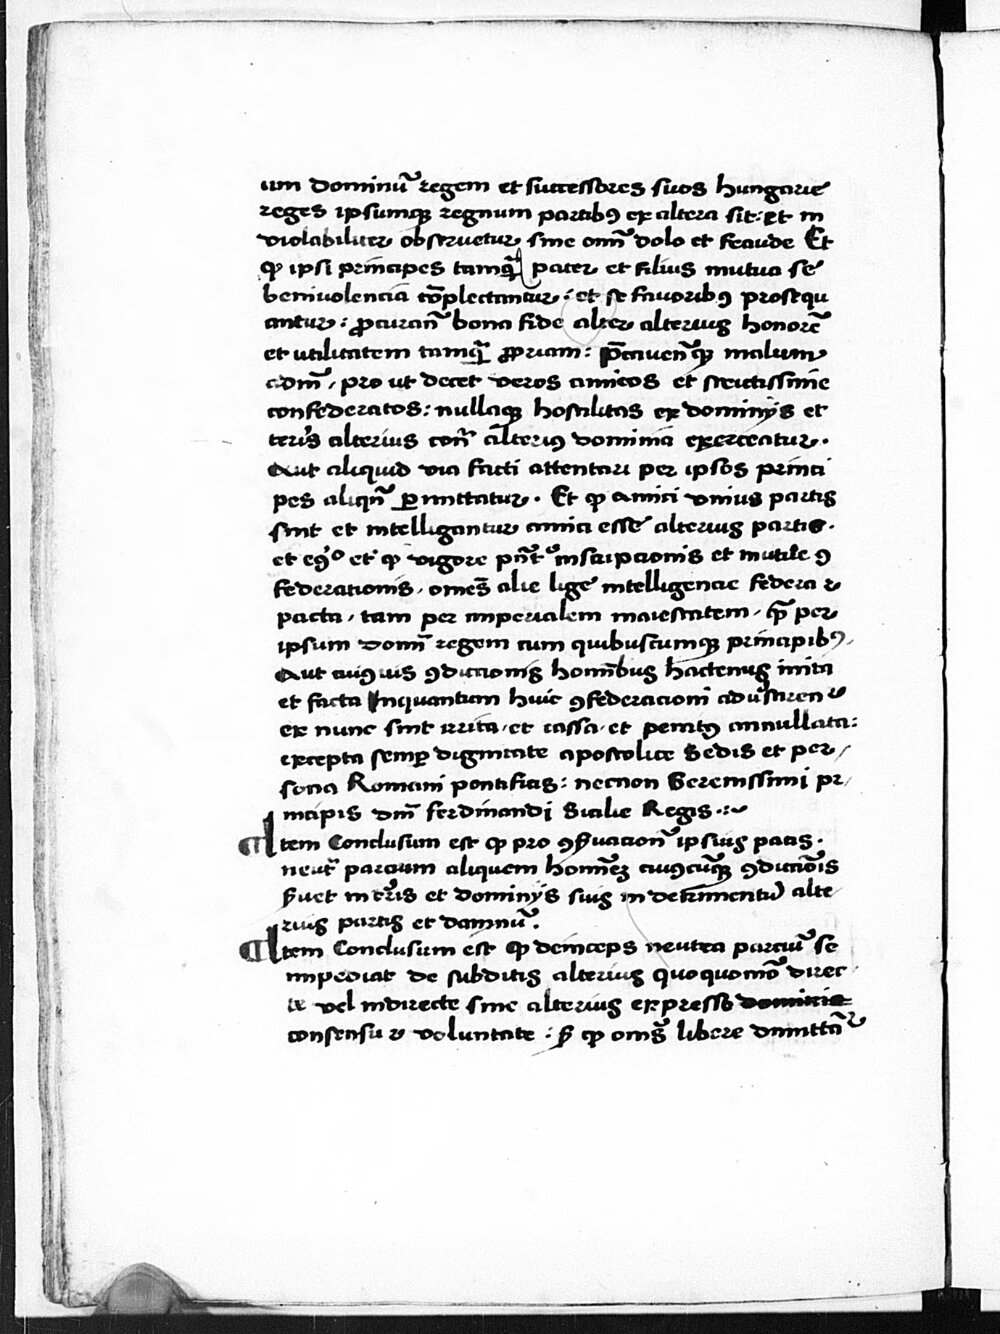 um dominū regem et successores suos hungarie
reges ipsumqꝫ regnum partibꝰ ex altera sit: Et in
violabiliter obseruetur sine om̄i dolo et fraude Et
ꝙ ipsi principes tamqͣ pater et filius mutua se
beniuolencia cōplectantur: et se fauoribꝰ prosequ
antur: ꝓcurāt bona fide alter alterius honorē
et utilitatem tamqͣ ꝓpriam: p̄cauentqꝫ malum
pro ut decet veros amicos et strictissime
confederatos: nullaqꝫ hostilitas ex dominijs et
terris alterius cont̄ alteriꝰ dominia exerceatur.
Aut aliquid via facti attentari per ipsos princi
pes aliqn̄ ꝑmittatur. Et ꝙ amici vnius partis
sint et intelligantur amici esse alterius partis.
et eꝯͦ et ꝙ vigore pn̄t inscripcionis et mutue ꝯ
federationis. omēs alie lige intelligencie federa ꝛ
pacta, tam per imperialem maiestatem, qͣ per
ipsum domī regem cum quibuscumqꝫ principibꝰ,
Aut cuiꝰuis ꝯdicionis hominībus hactenus inita
et facta Inquantum huic ꝯfederacioni aduͥsaren̄ꝛ
ex nunc sint irrita, et cassa, et penitꝰ annullata:
excepta semꝑ dignitate apostolice Sedis et per
sona Romani pontificis: necnon Serenissimi pr
incipis dn̄i ferdinandi Sicilie Regis.
Item Conclusum est ꝙ pro ꝯẜuacion̄ ipsius pacis.
neutͣ parcium aliquem hominē cuiꝰcūqꝫ ꝯdiciōis
ẜuet in tris et dominijs suis in detrimentū alte
rius partis et damnū.
Item Conclusum est ꝙ deinceps neutra parciū se
impediat de subditis alterius quoquomō direc
te vel indirecte sine alterius expresso
consensu ꝛ voluntate: ẜ ꝙ omēs libere dimittāꝛ